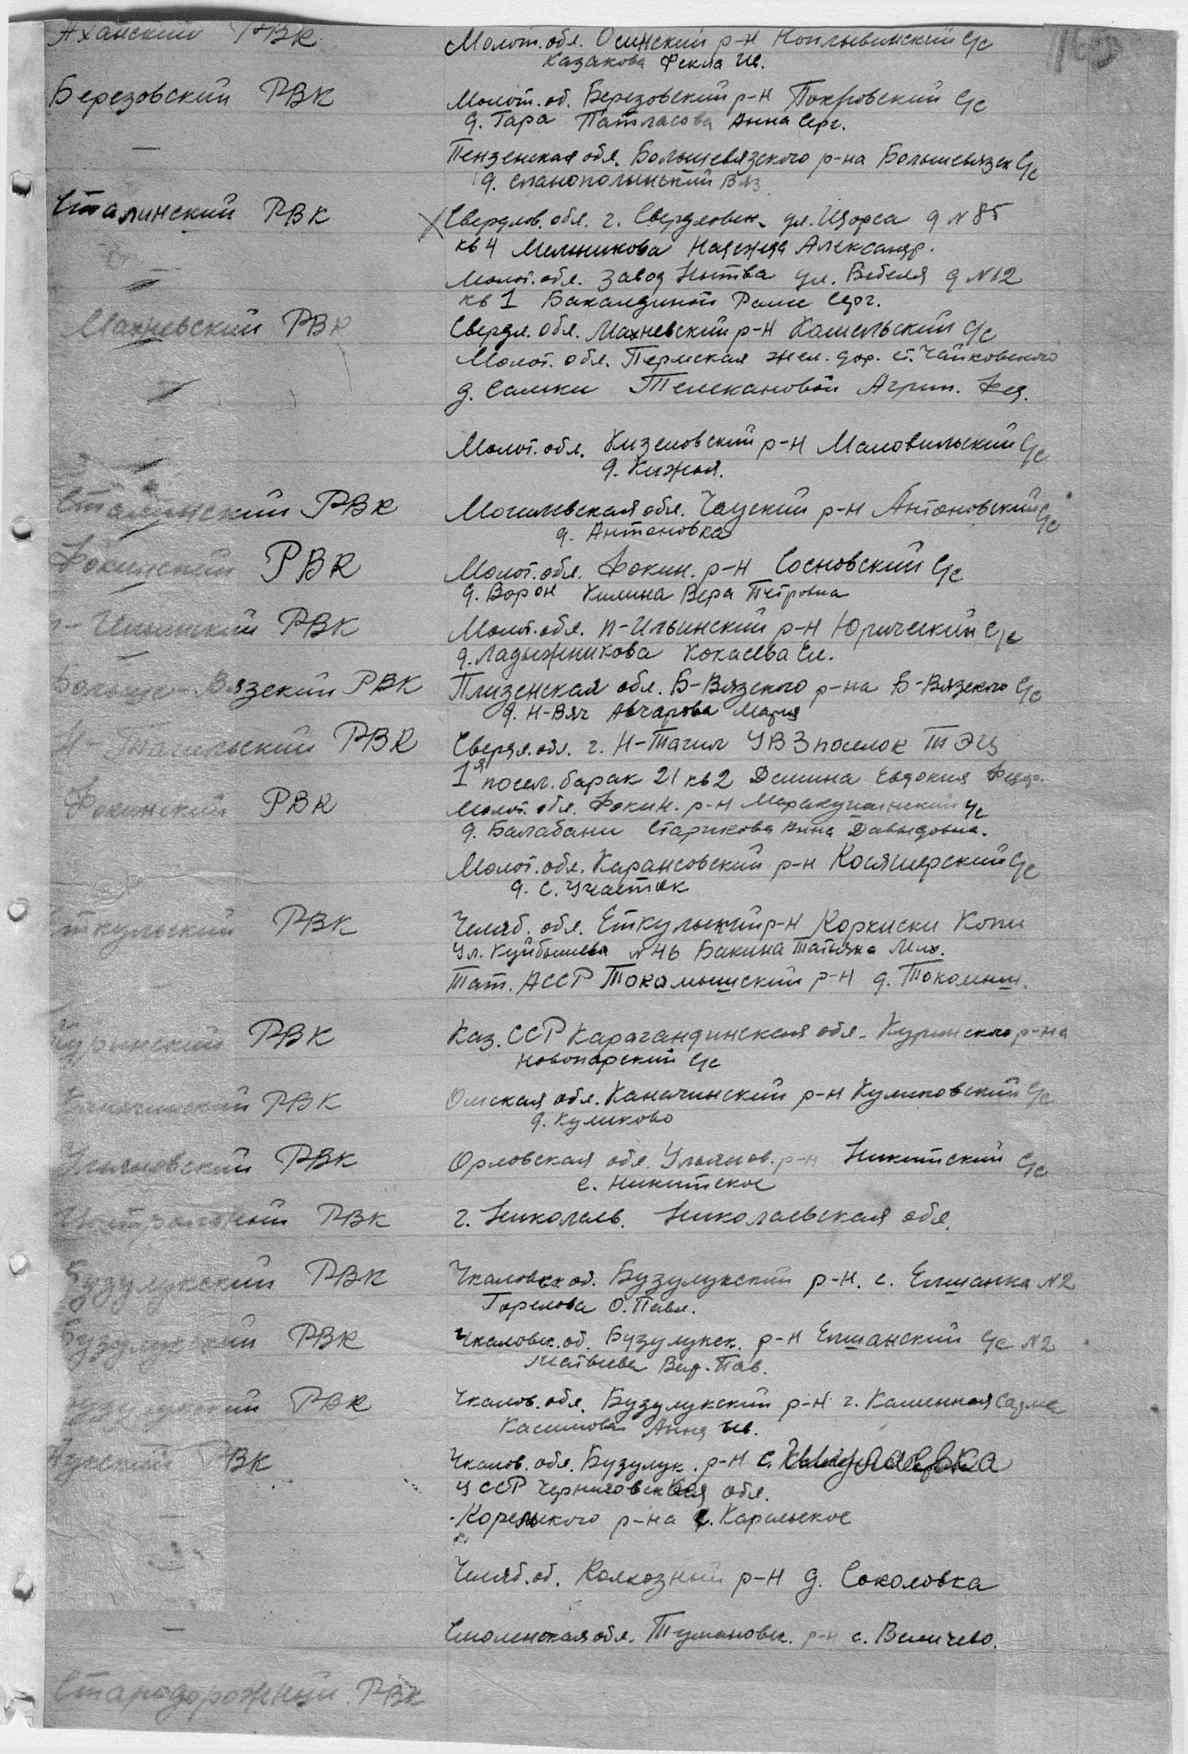 Аханский РВК Молот. обл. Осинский р-н Копылвинский с/с
Казакова Фекла Ив.
Березовский РВК Молот. об. Березовский р-н Покровский с/с
д. Тара Патласова Анна Серг.
— Пензенская обл. Большевязского р-на Большевязск с/с
д.
Сталинский РВК Свердлов. обл. г. Свердловск, ул. Щорса д N 85
кв 4 Мельникова Надежда Александр.
— Молот. обл. завод Нытва ул. Бебеля д N 12
кв 1 Бакалдиной Раисе Серг.
Махневский РВК Свердл. обл. Махневский р-н Кашельский с/с
Молот. обл. Пермская жел. дор. ст. Чайковского
— д. Сашки Телекановой Агрип. Фед.
Молот. обл. Кизеловский р-н Маловильский с/с
— д. Кижья.
Сталинский РВК Могилевская обл. Чауский р-н Антоновский с/с
д. Антоновка
Фокинский РВК Молот. обл. Фокин. р-н Сосновский с/с
д. Ворон Килина Вера Петровна
п-Ильинский РВК Молот. обл. п-Ильинский р-н Юрический с/с
д. Ладыжникова Кокаева Ел.
Больше-Вязский РВК Пнзенская обл. Б-Вязского р-на Б-Вязского с/с
д. Н-Вяч Авчарова Мария
Н-Тагильский РВК Свердл. обл. г. Н-Тагил УВЗ поселок ТЭЦ
1я посел. барак 21 кв 2 Демина Евдокия
Фокинский РВК Молот. обл. Фокин. р-н с/с
д. Балабаны Старикова Анна Давыдовна.
Молот. обл. р-н с/с
д. с. Участок
Еткульский РВК Челяб. обл. Еткульский р-н Коркиски Копи
Ул. Куйбышева N 46 Бакина Татьяна Мих.
Тат. АССР Токамышский р-н д. Токомыш.
РВК Каз. ССР Карагандинская обл. р-на
с/с
РВК Омская обл. р-н Куликовский с/с
д. Куликово
Ульяновский РВК Орловская обл. Ульянов. р-н Никитский с/с
с. Никитское
РВК г. Николаев. Николаевская обл.
Бузулукский РВК Чкаловск об. Бузулукский р-н. с. Елшанка N 2
Горелова О. Павл.
Бузулукский РВК Чкаловск. об. Бузулукск. р-н Елшанский с/с N 2
Матвеева Вар. Пав.
Бузулукский РВК Чкалов. обл. Бузулукский р-н г. Каменная Сарма
Касимова Анна Ив.
РВК Чкалов. обл. Бузулук. р-н с.
УССР Черниговская обл.
— Корельского р-на с. Карольское
— Челяб. об. Колхозный р-н д. Соколовка
— Смоленская обл. Тумановск. р-н с. Величево.
Стародорожный РВК